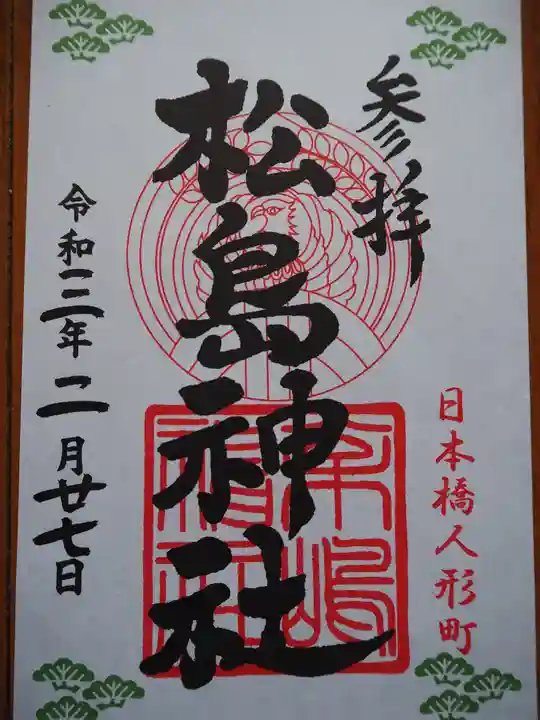 参拝
日本橋人形町
松島神社
令和三年二月廿七日